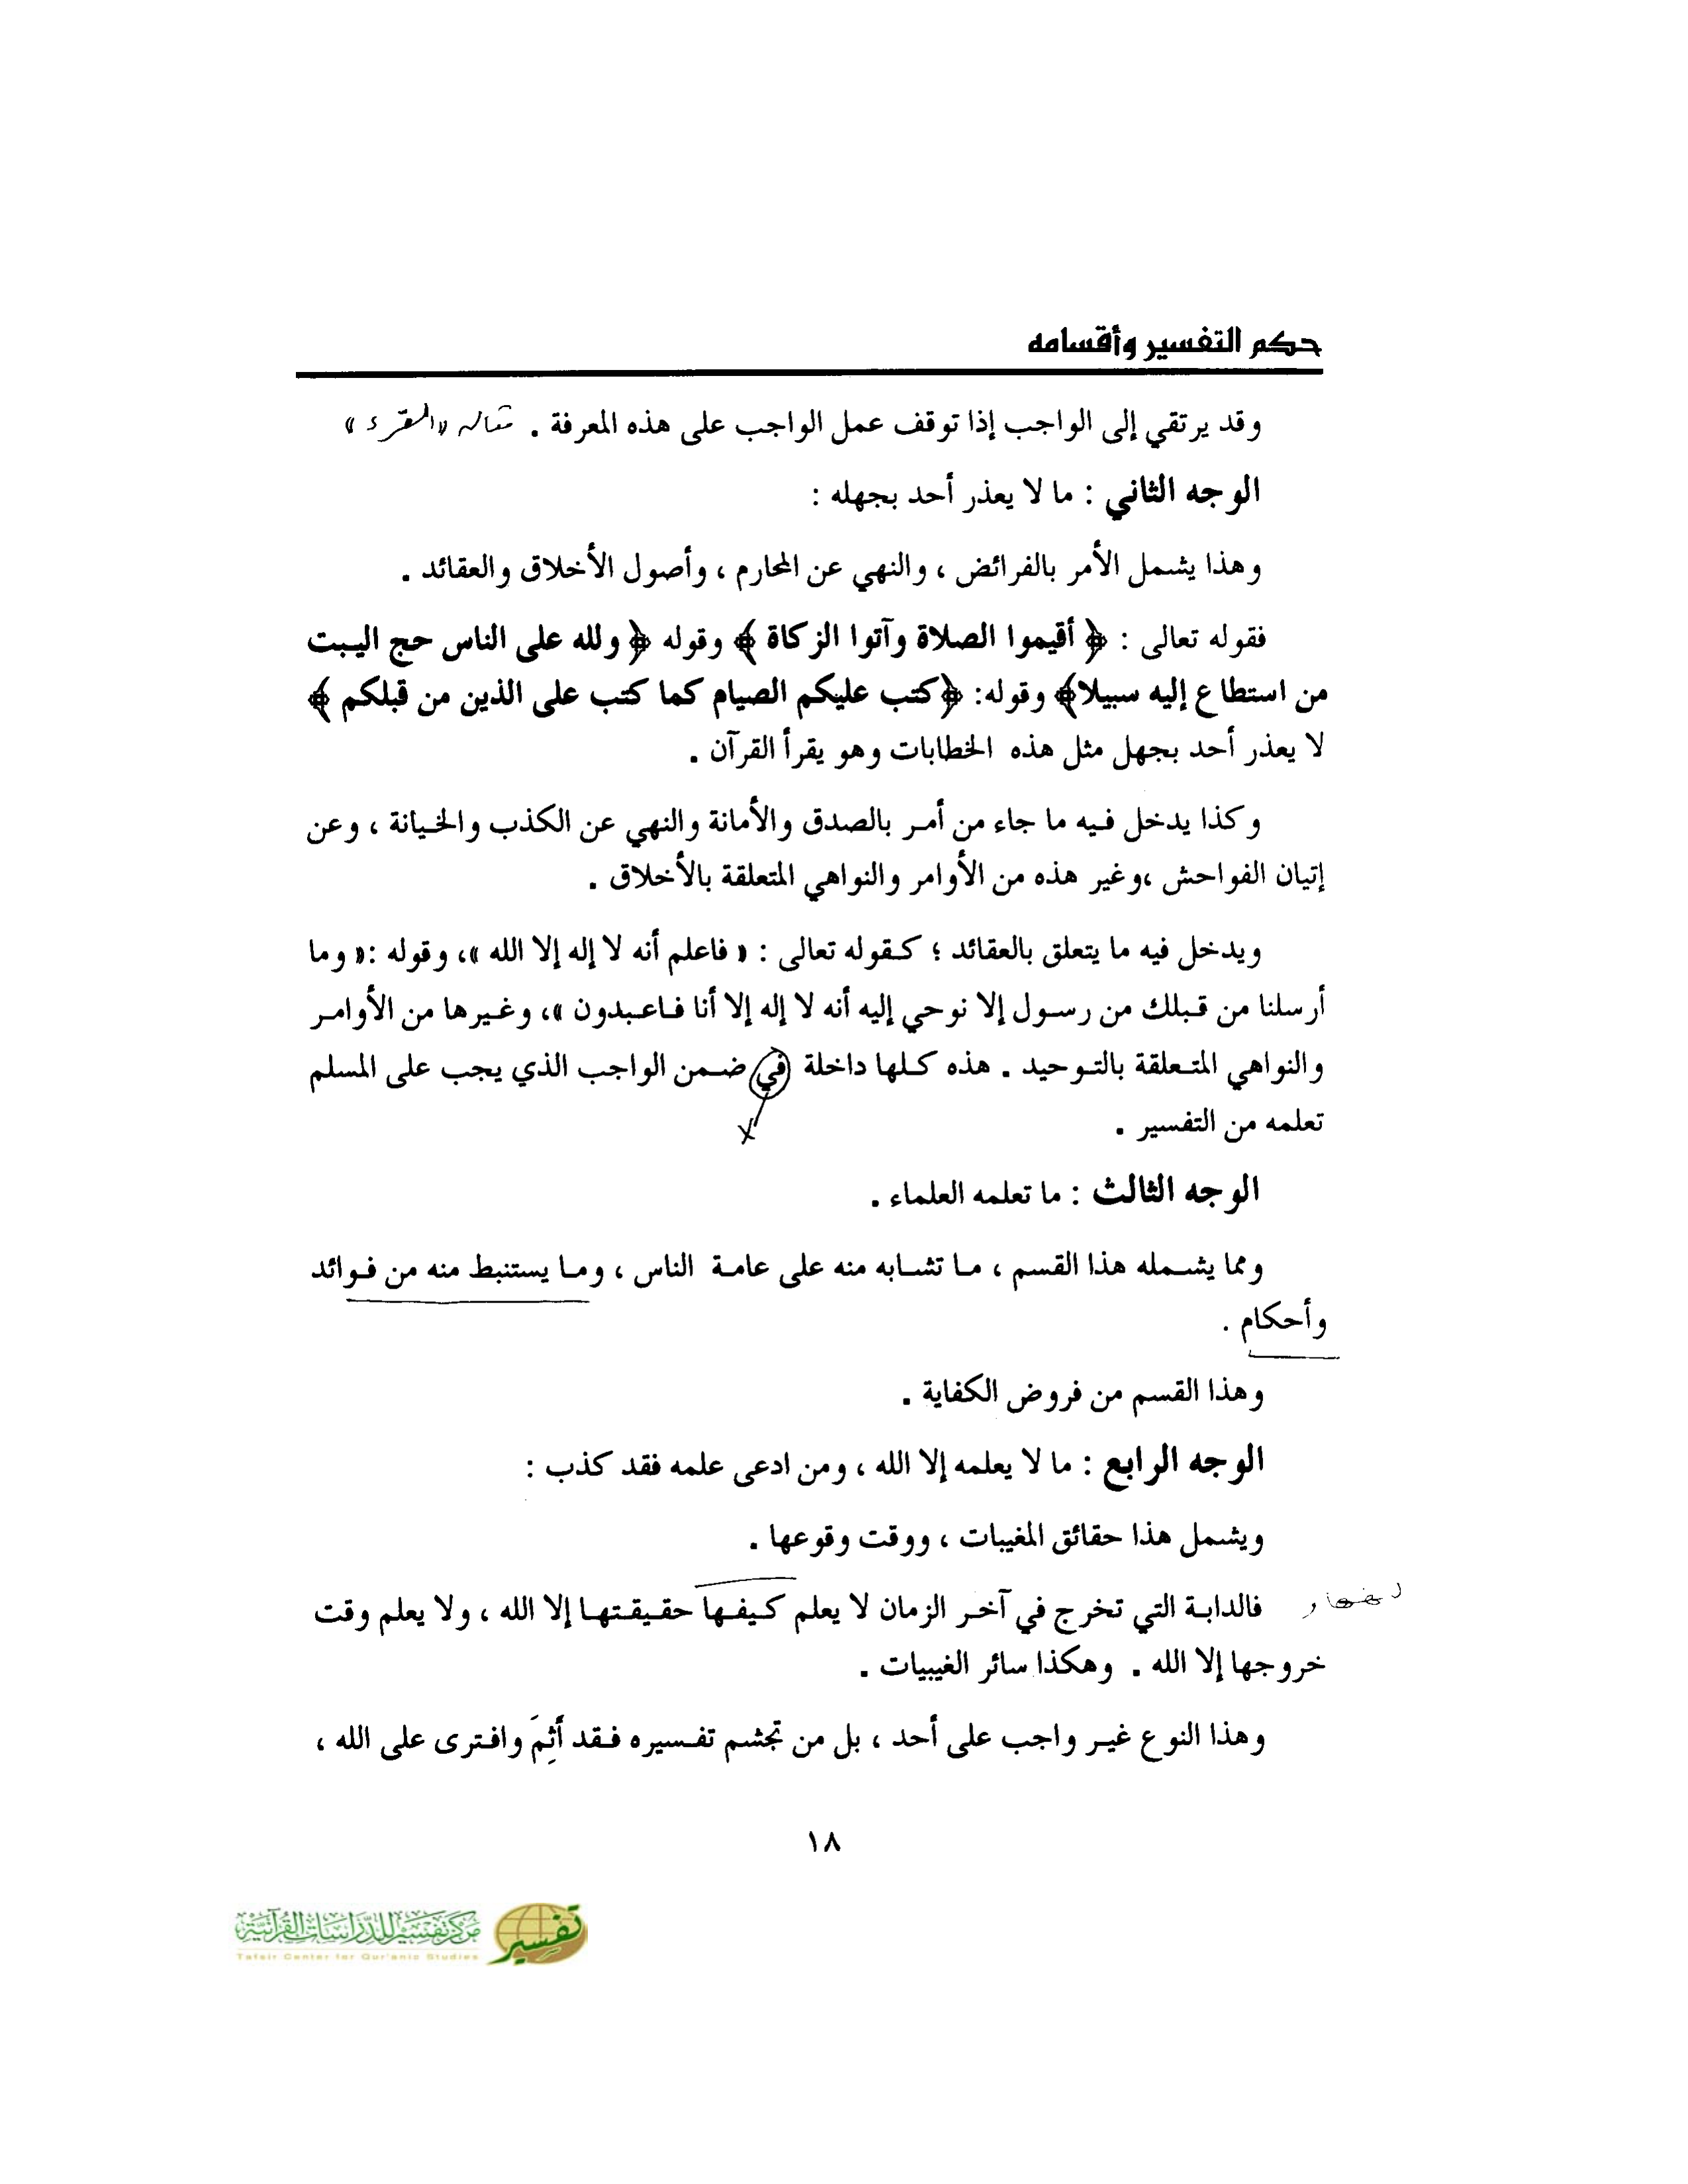 حكم التفسير وأقسامه
وقد يرتقي إلى الواجب إذا توقف عمل الواجب على هذه المعرفة . مثاله «القرء»
الوجه الثاني : ما لا يعذر أحد بجهله :
وهذا يشمل الأمر بالفرائض ، والنهي عن المحارم ، وأصول الأخلاق والعقائد .
فقوله تعالى : ﴿ أقيموا الصلاة وآتوا الزكاة ﴾ وقوله ﴿ ولله على الناس حج البيت
من استطاع إليه سبيلا﴾ وقوله: ﴿كتب عليكم الصيام كما كتب على الذين من قبلكم ﴾
لا يعذر أحد بجهل مثل هذه الخطابات وهو يقرأ القرآن .
وكذا يدخل فيه ما جاء من أمر بالصدق والأمانة والنهي عن الكذب والخيانة ، وعن
إتيان الفواحش ،وغير هذه من الأوامر والنواهي المتعلقة بالأخلاق .
ويدخل فيه ما يتعلق بالعقائد ؛ كقوله تعالى : « فاعلم أنه لا إله إلا الله »، وقوله :« وما
أرسلنا من قبلك من رسول إلا نوحي إليه أنه لا إله إلا أنا فاعبدون »، وغيرها من الأوامر
والنواهي المتعلقة بالتوحيد . هذه كلها داخلة في ضمن الواجب الذي يجب على المسلم
تعلمه من التفسير .
الوجه الثالث : ما تعلمه العلماء .
ومما يشمله هذا القسم ، ما تشابه منه على عامة الناس ، وما يستنبط منه من فوائد
وأحكام .
وهذا القسم من فروض الكفاية .
الوجه الرابع : ما لا يعلمه إلا الله ، ومن ادعى علمه فقد كذب :
ويشمل هذا حقائق المغيبات ، ووقت وقوعها .
فالدابة التي تخرج في آخر الزمان لا يعلم كيفها حقيقتها إلا الله ، ولا يعلم وقت
خروجها إلا الله . وهكذا سائر الغيبيات .
وهذا النوع غير واجب على أحد ، بل من تجشم تفسيره فقد أَثِمَ وافترى على الله ،
١٨
مركز تفسير للدراسات القرآنية
Tafsir Center for Qur'anic Studies
تفسير